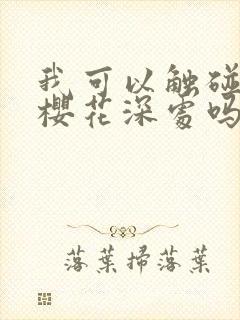 我可以触碰
樱花深處吗
落葉掃落葉